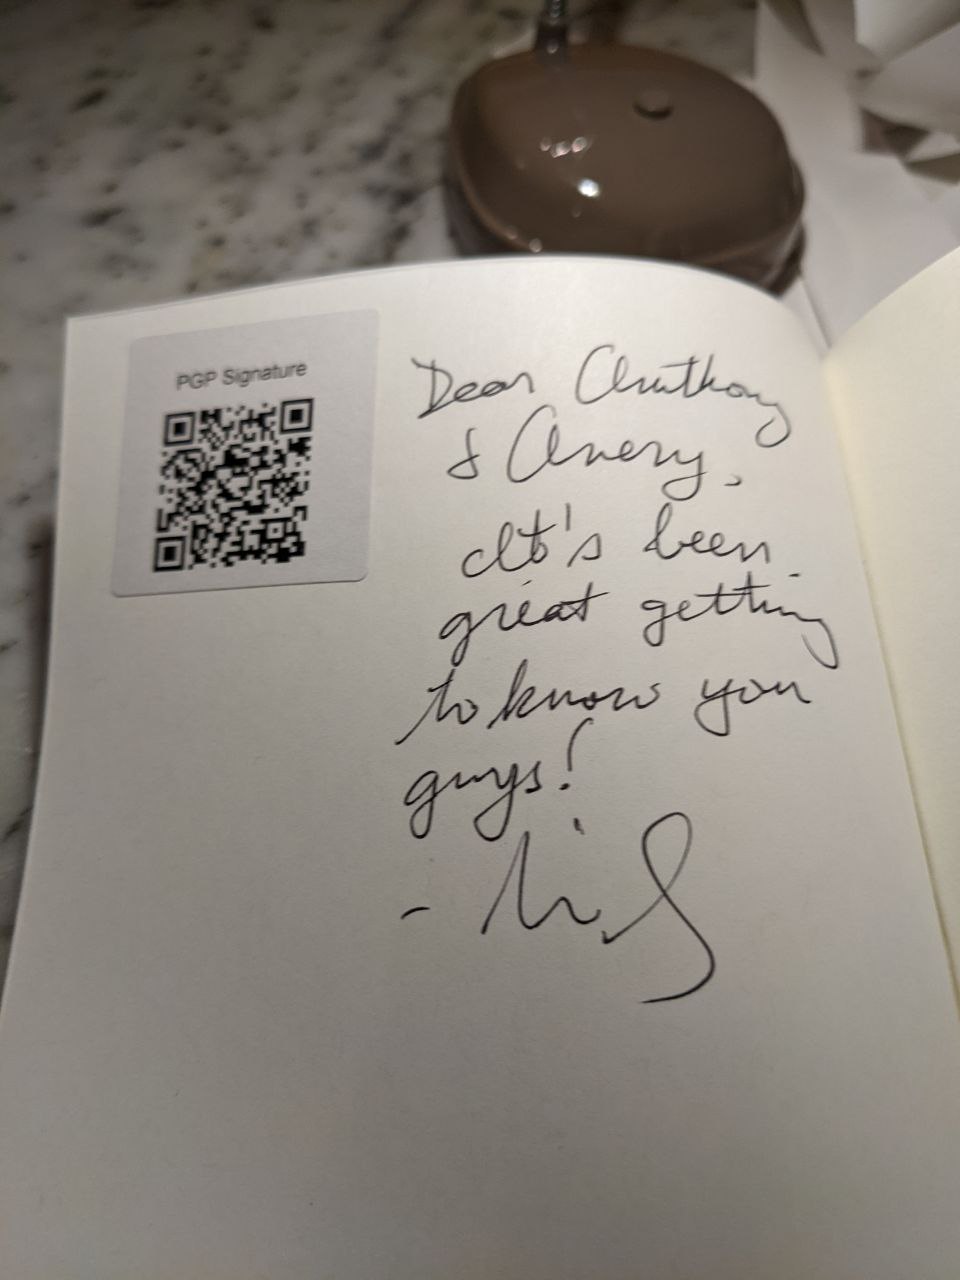 PGP Signature
Dear Anthony
& Avery,
It's been
great getting
to know you
guys!
-